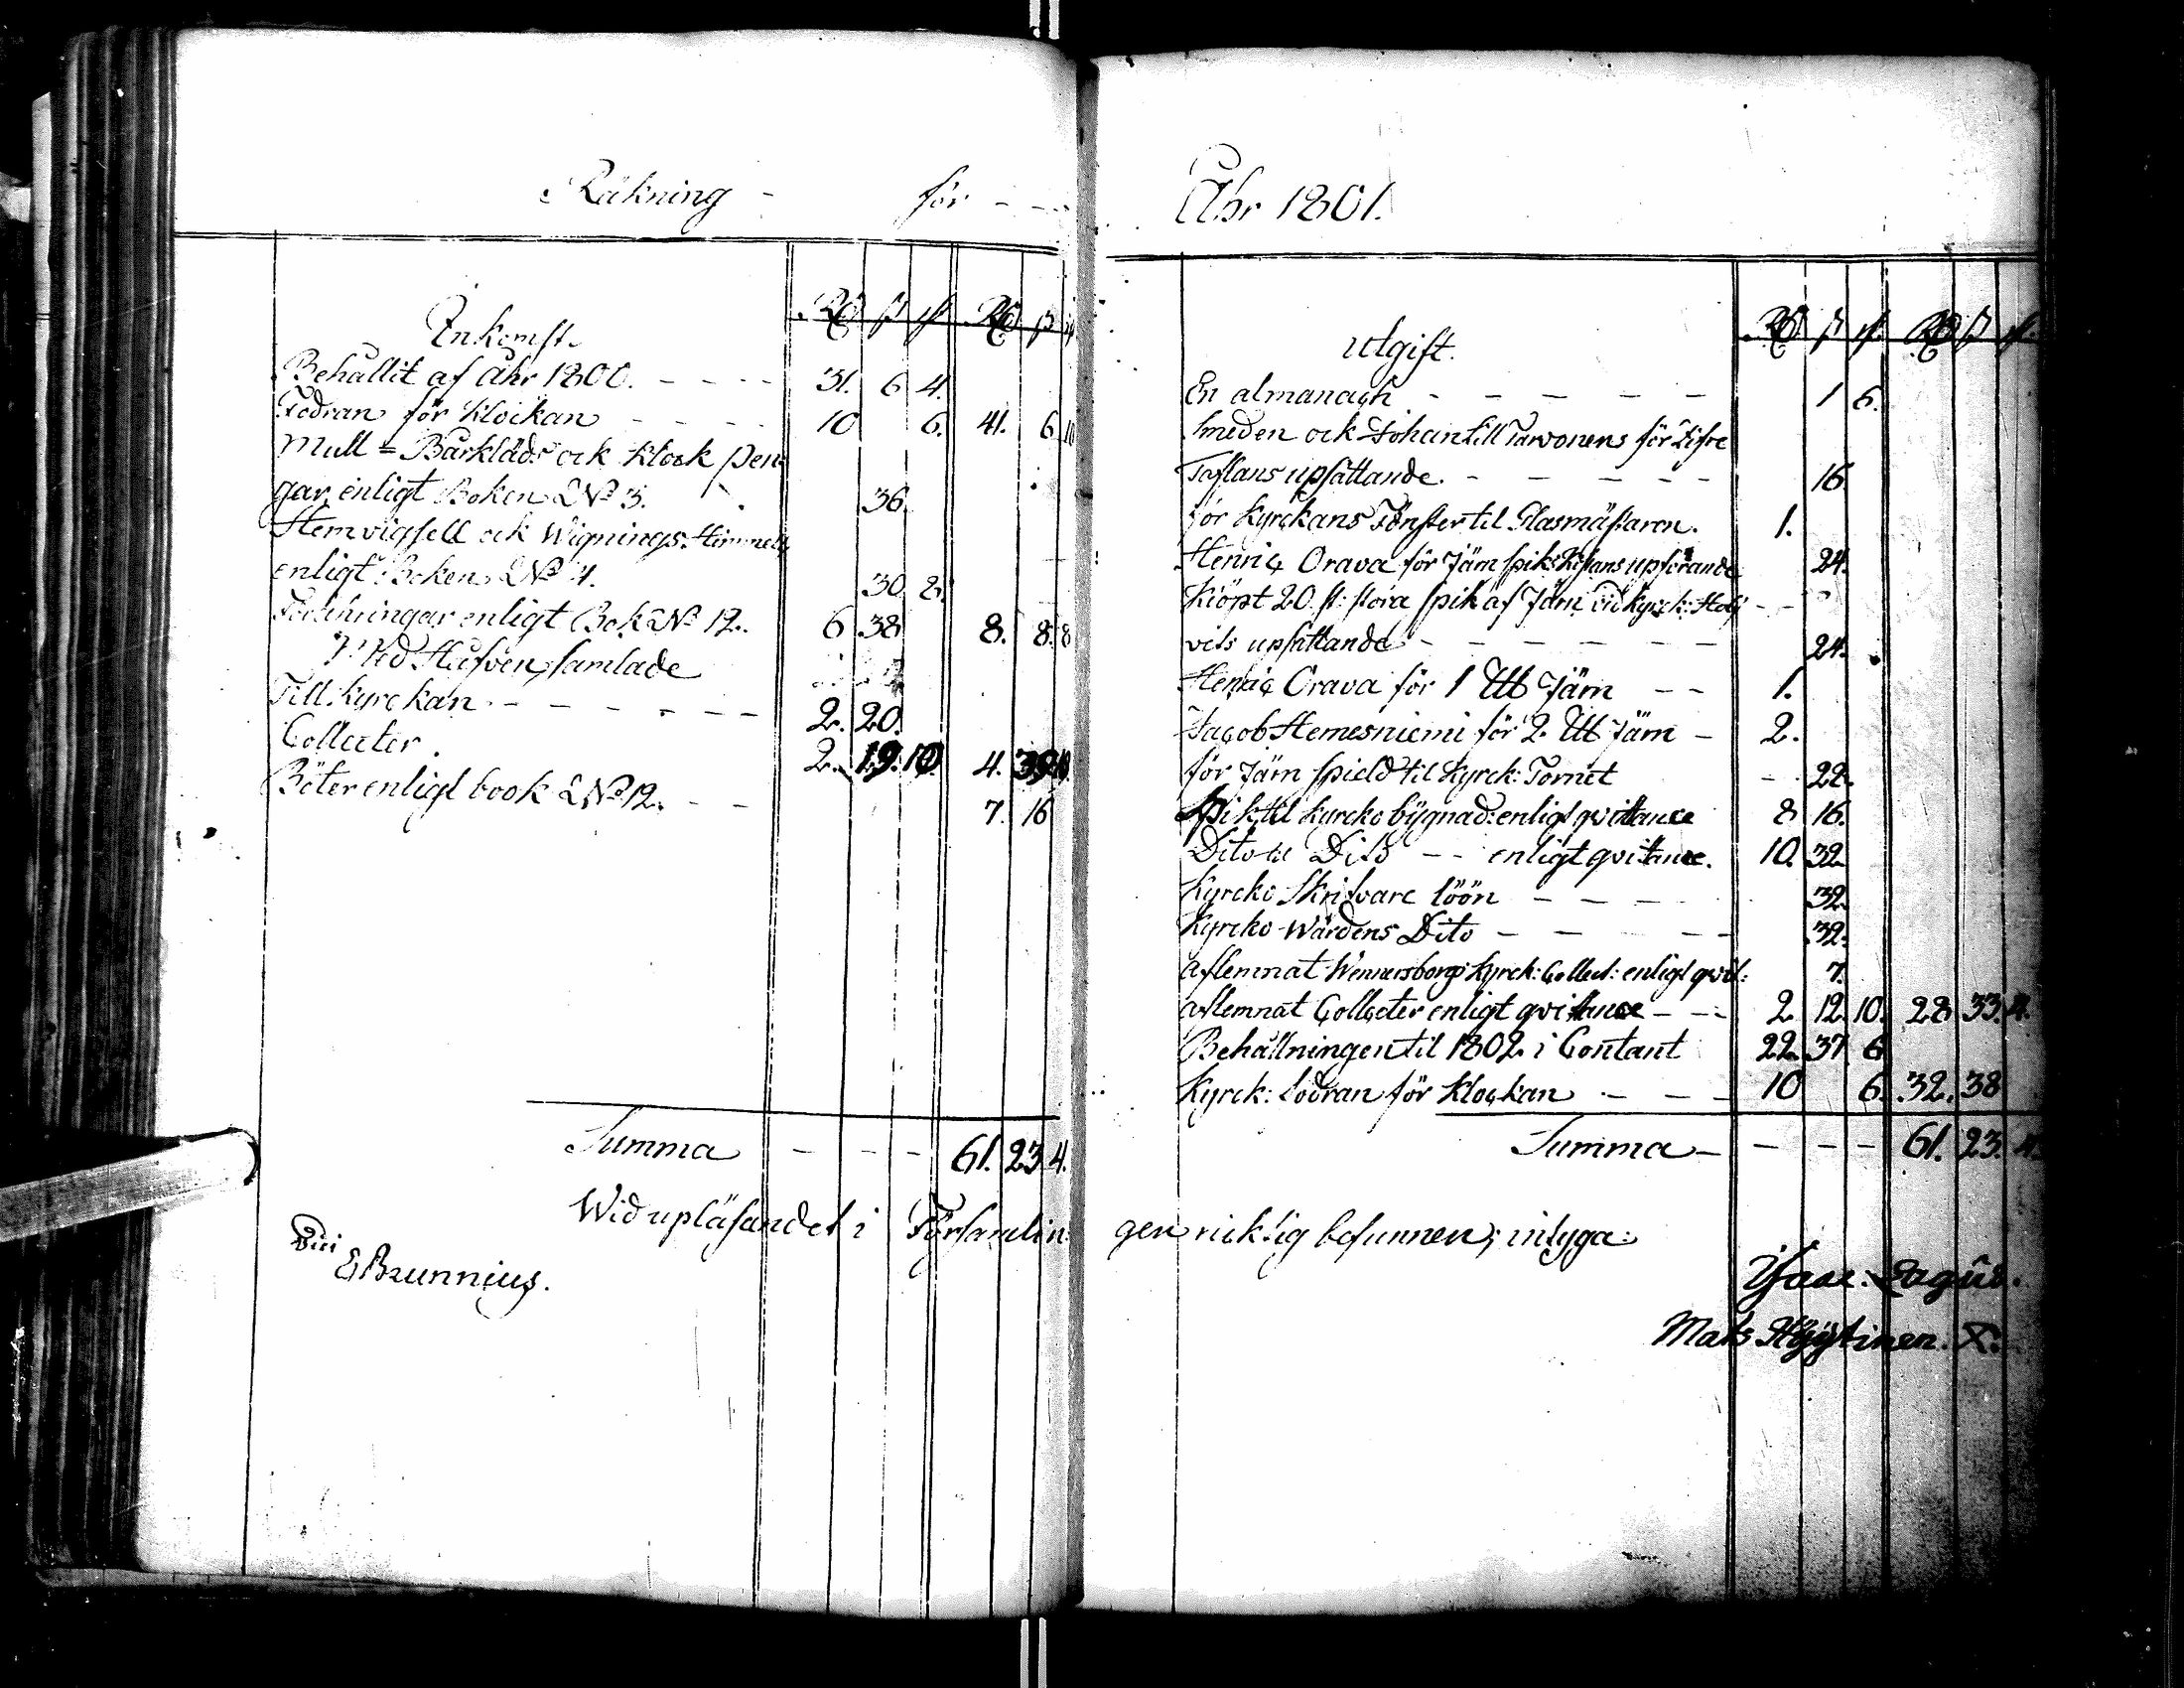 Räkning - för - -
Inkomst. Rd ß rst. Rd ß rst
Behållit af åhr 1800. - - - - 31. 6 4.
Fodran för Klockan - - - 10 6. 41. 6 10
Mull- Bårkläds ock Klock pen-
gar enligt Boken N:o 3. 36.
Hemvigsell ock Wignings Himmels
enligt Boken N:o 4. 30 2.
enligt Bok N:o 12. 6 38 8. 8. 8
Med Håfven samlade
Till Kyrckan - - - - - - - 2. 20.
Collecter. 2. 19. 10. 4. 39. 10.
Böter enligt book N:o 12. - - 7. 16
Summa - - - 61. 23 4.
Wid upläsandet i Församlin-
Vidi
EBrunnius.
Åhr 1801.
Utgift. Rd ß rst. Rd ß rst.
En almanach - - - - - 1 6.
Smeden ock Johan Lill Tarvonens för Zifre
Taflans upsättande. - - - - - 16.
för Kyrckans Fönster til Glasmästaren. 1.
Henric Orava för Järn spiks upförande 24.
Kiöpt 20 st: stora spik af Järn vid Kyrck:
upsättande - - - - - - 24.
Henric Orava för 1 Järn - - 1.
Jacob Hemesniemi för 2 Järn - 2.
för Järn spield til Kyrck: Tornet - - 22.
Spik til kyrcko bygnad: enligt qvittance 8 16.
Dito til Dito - - enligt qvittance. 10. 32
Kyrcko Skrifvare löön - - - - 32.
Kyrcko Wärdens Dito - - - - - 32.
aflemnat Wennersborgs Kyrck: Collect: enligt qvit: 7.
aflemnat Collecter enligt qvittance - - - 2 12. 10. 28 33. 4.
Behållningen til 1802 i Contant 22. 37 6
Kyrck: fodran för klockan - - - 10 6. 32. 38
Summa - - - - 61. 23. 4.
gen ricktig befunnen; intyga:
Isaac: Lagus.
Mats Höytinen. X.